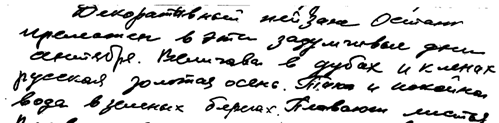 Декоративный пейзаж Остан
прелестен в эти задумчивые дни
сентября. Величава в дубах и кленах
русская золотая осень. Тиха и покойна
вода в зеленых берегах. Плавают листья